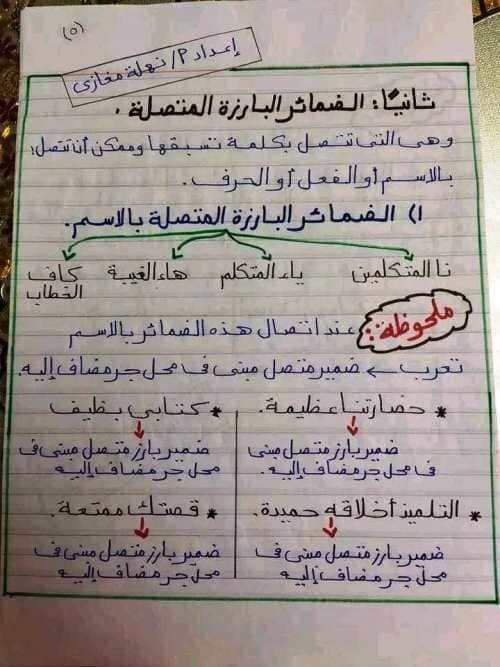 (٥)
إعداد م/ نهلة مغازى
ثانيًا: الضمائر البارزة المتصلة.
وهى التى تتصل بكلمة تسبقها وممكن أن تتصل:
بالاسم أو الفعل أو الحرف.
١) الضمائر البارزة المتصلة بالاسم.
نا المتكلمين ياء المتكلم هاء الغيبة كاف الخطاب
ملحوظة: عند اتصال هذه الضمائر بالاسم
تعرب ← ضمير متصل مبنى فى محل جر مضاف إليه.
* حضارتنا عظيمة.
ضمير بارز متصل مبنى
فى محل جر مضاف إليه
* كتابي نظيف
ضمير بارز متصل مبنى فى
محل جر مضاف إليه
* التلميذ أخلاقه حميدة.
ضمير بارز متصل مبنى فى
محل جر مضاف إليه
* قصتك ممتعة.
ضمير بارز متصل مبنى فى
محل جر مضاف إليه